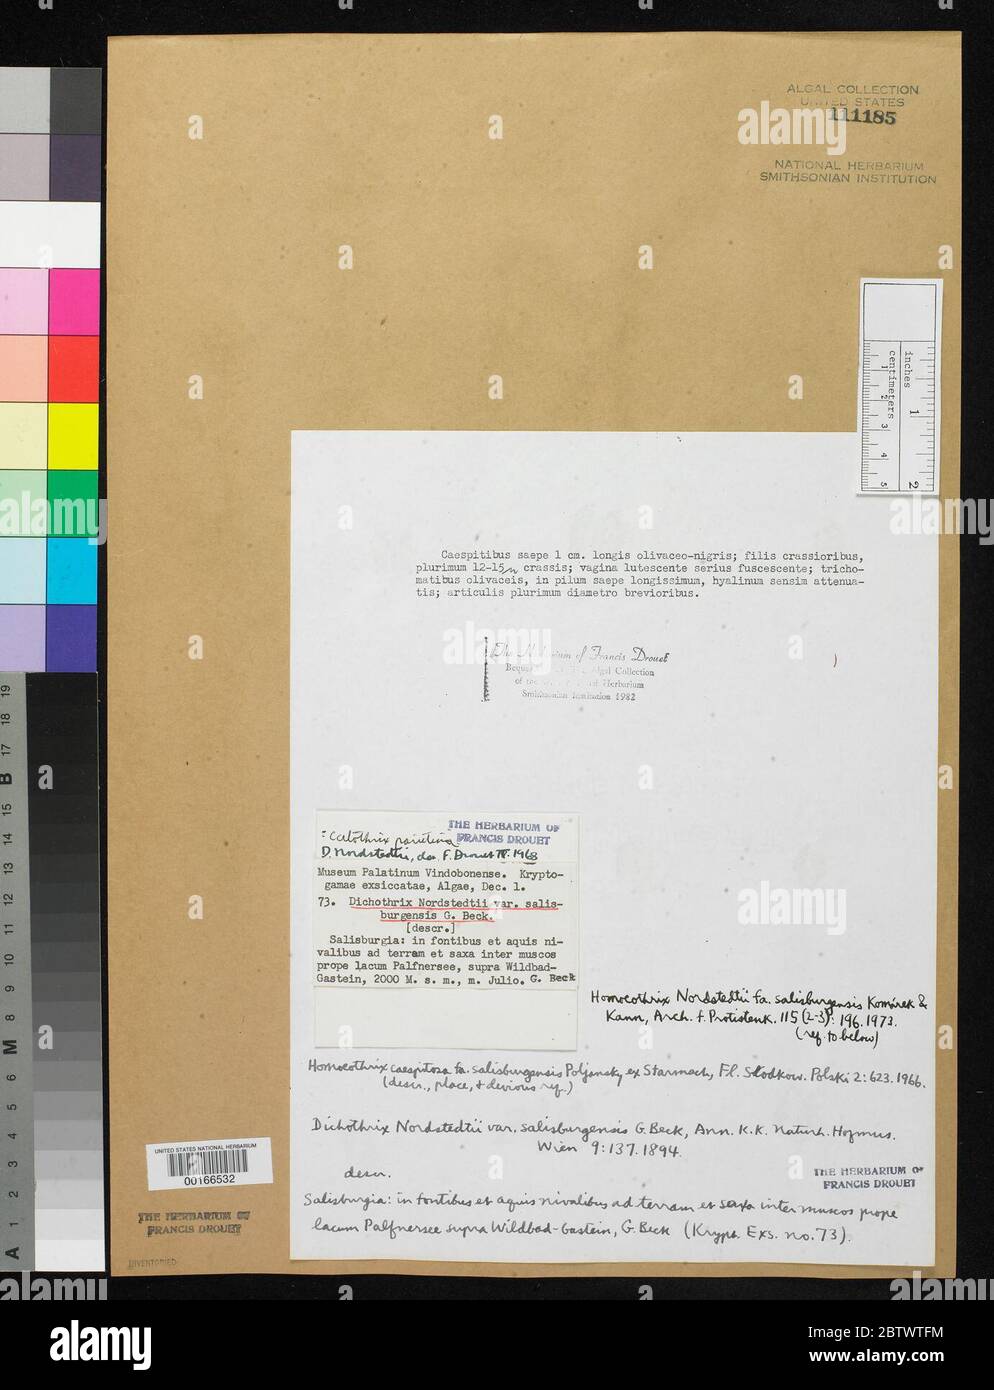 ALGAL COLLECTION
UNITED STATES
111185
NATIONAL HERBARIUM
SMITHSONIAN INSTITUTION
inches
centimeters
1 2 3 4 5
1 2
Caespitibus saepe 1 cm. longis olivaceo-nigris; filis crassioribus,
plurimum 12-15μ crassis; vagina lutescente serius fuscescente; tricho-
matibus olivaceis, in pilum saepe longissimum, hyalinum sensim attenua-
tis; articulis plurimum diametro brevioribus.
The Herbarium of Francis Drouet
Algal Collection
of the Herbarium
Smithsonian Institution 1982
THE HERBARIUM OF
FRANCIS DROUET
= Calothrix parietina
D. Nordstedtii, det F. Drouet IV. 1968
Museum Palatinum Vindobonense. Krypto-
gamae exsiccatae, Algae, Dec. 1.
73. Dichothrix Nordstedtii var. salis-
burgensis G. Beck.
[descr.]
Salisburgia: in fontibus et aquis ni-
valibus ad terram et saxa inter muscos
prope lacum Palfnersee, supra Wildbad-
Gastein, 2000 M. s. m., m. Julio. G. Beck
Homoeothrix Nordstedtii fa. salisburgensis Komárek &
Kann, Arch. f. Protistenk. 115 (2-3): 196. 1973.
(ref. to below)
Homoeothrix caespitosa fa. salisburgensis Poljansky ex Starmach, Fl. Slodkow. Polski 2: 623. 1966.
(descr., place, & devious ref.)
Dichothrix Nordstedtii var. salisburgensis G. Beck, Ann. K. K. Naturh. Hofmus.
Wien 9: 137. 1894.
descr.
THE HERBARIUM OF
FRANCIS DROUET
Salisburgia: in fontibus et aquis nivalibus ad terram et saxa inter muscos prope
lacum Palfnersee supra Wildbad-Gastein, G. Beck (Krypt. Exs. no. 73).
UNITED STATES NATIONAL HERBARIUM
00166532
THE HERBARIUM OF
FRANCIS DROUET
INVENTORIED
A 1 2 3 4 5 6 M 8 9 10 11 12 13 14 15 B 17 18 19
alamy
Image ID: 2BTWTFM
www.alamy.com